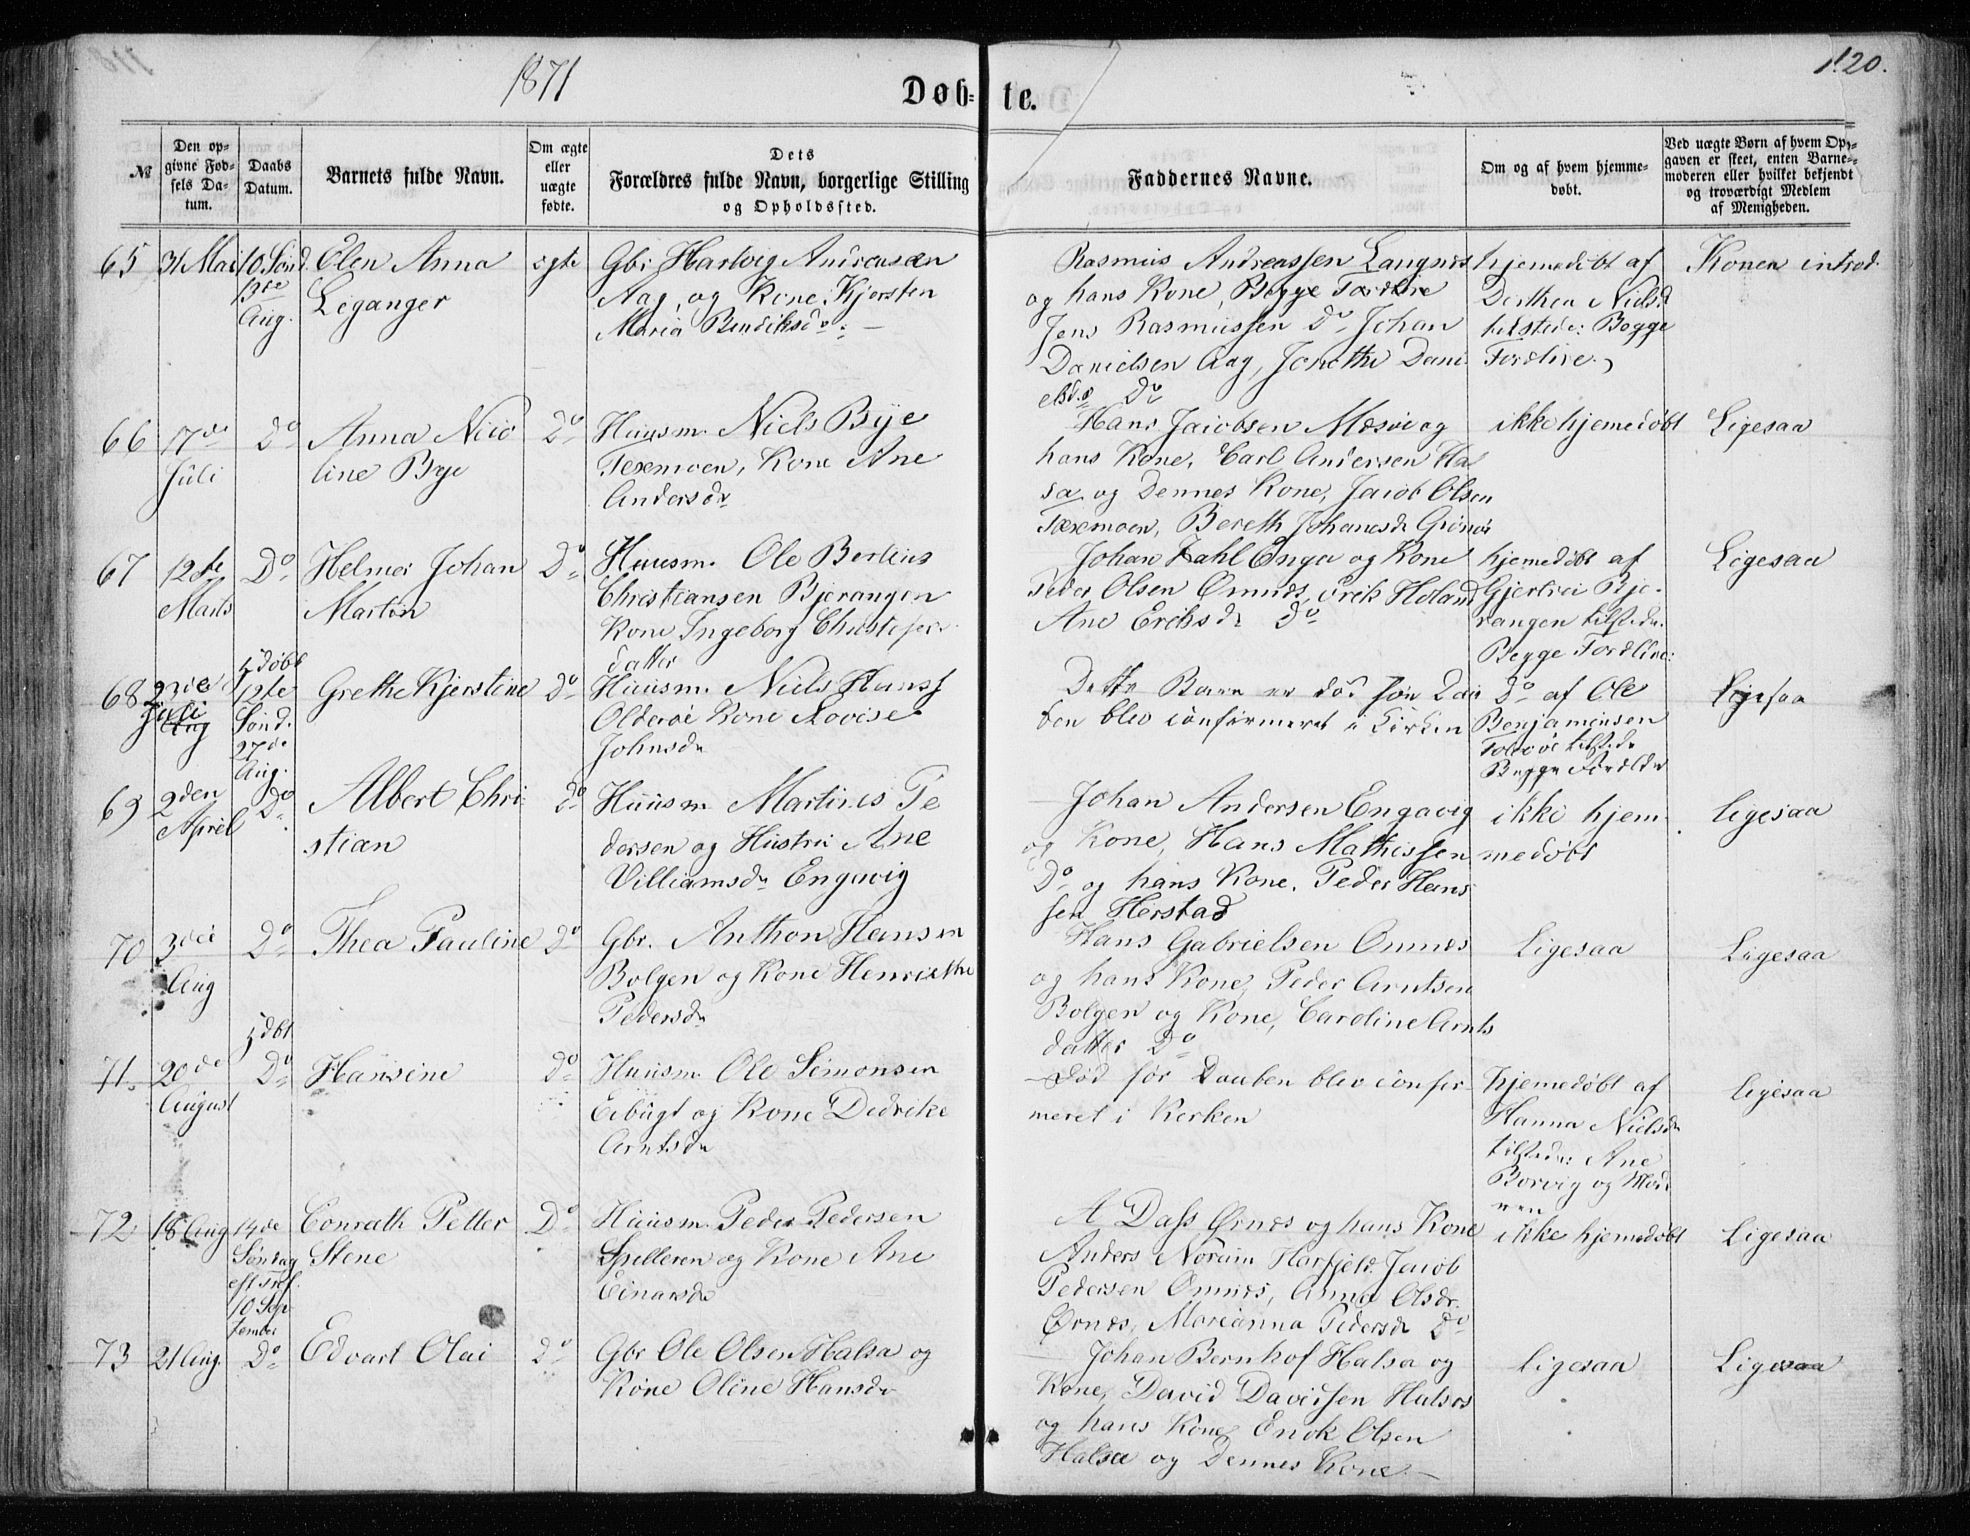 1871
Døb-
te.
120.
№
Den op-
givne Fød-
sels Da-
tum.
Daabs
Datum.
Barnets fulde Navn.
Om ægte
eller
uægte
fødte.
Dets
Forældres fulde Navn, borgerlige Stilling
og Opholdssted.
Faddernes Navne.
Om og af hvem hjemme-
døbt.
Ved uægte Børn af hvem Op-
gaven er skeet, enten Barne-
moderen eller hvilket bekjendt
og troværdigt Medlem
af Menigheden.
65
31 Mai
10 Sønd.
13de
Aug.
Elen Anna
Leganger
ægte
Gbr. Hartvig Andreasen
Aag, og Kone Kjersten
Maria Bendiksdr. —
Rasmus Andreassen Langnes
og hans Kone, Begge Fordlre
Jens Rasmussen Do Johan
Danielsen Aag, Jonethe Dani
elsd. Do
hjemedøbt af
Dorthea Nielsd
tilstede: Begge
Fordlre.
Konen introd.
66
17de
Juli
Do
Anna Nico
line Bye
Do
Huusm. Niels Bye
Texmoen, Kone Ane
Andersdr
Hans Jacobsen Mesøe og
hans Kone, Carl Andersen Ha
sa og Dennes Kone, Jacob Olsen
Texmoen, Bereth Johanesdr Grønø
ikke hjemedøbt
Ligesaa
67
12te
Marts
Do
Helmer Johan
Martin
Do
Huusm. Ole Bertius
Christiansen Bjerangen
Kone Ingeborg Christofer-
datter
Johan Zahl Enga og Kone
Peder Olsen Ømnes, Erik Holand
Ane Eriksdr Do
hjemedøbt af
Gjertrei Bje-
rangen tilstede.
Begge Fordlre:
Ligesaa
68
2den
Juli
Aug
døbt
12te
Sønd.
27de
Aug.
Grethe Kjerstine
Do
Huusm. Niels Hanss
Olderøe Kone Lovise
Johnsdr
Dette Barn er død før Daa
ben blev confirmeret i Kirken
Do af Ole
Benjaminsen
tilstede
Begge Forældre
Ligesaa
69
2den
April
Do
Albert Chri
stian
Do
Huusm Martines Pe
dersen og Hustru Ane
Villiamsdr Engavig
Johan Andersen Engavig
og Kone, Hans Mathissen
Do og hans Kone. Peder Hans
sen Herstad
ikke hjem-
medøbt
Ligesaa
70
3die
Aug
Do
Thea Pauline
Do
Gbr. Anthon Hansen
Bolgen og Kone Henriethe
Pedersdr
Hans Gabrielsen Ømnes
og hans Kone, Peder Arntsen
Bolgen og Kone, Caroline Arnts
datter Do
Ligesaa
Ligesaa
71.
20de
August
døbt
Do
Hansine
Do
Huusm Ole Simonsen
Eibugt og Kone Dedrike
Arntsdr
Død før Daaben blev confir
meret i Kirken
hjemedøbt af
Hanna Nielsdr
tilstede: Ane
Borvig og Mod
ren
Ligesaa
72
18 Aug
14de
Søndag
eft Tref.
10 Sep
tember
Conrath Petter
Stene
Do
Huusm. Peder Pedersen
Spilleren og Kone Ane
Einarsdr
A Dass Ørnes og hans Kone
Anders Norum Harfjeld. Jacob
Pedersen Ømnes, Anna Olsdr.
Ørnes, Morianna Pedersdr Do
ikke hjemedøbt
Ligesaa
73
21 Aug.
Do
Edvart Olai
Do
Gbr Ole Olsen Halsa og
Kone Oline Hansdr
Johan Bernhof Halsa og
Kone, David Davidsen Halsos
og hans Kone, Enok Olsen
Halsa og Dennes Kone. —
Ligesaa
Ligesaa